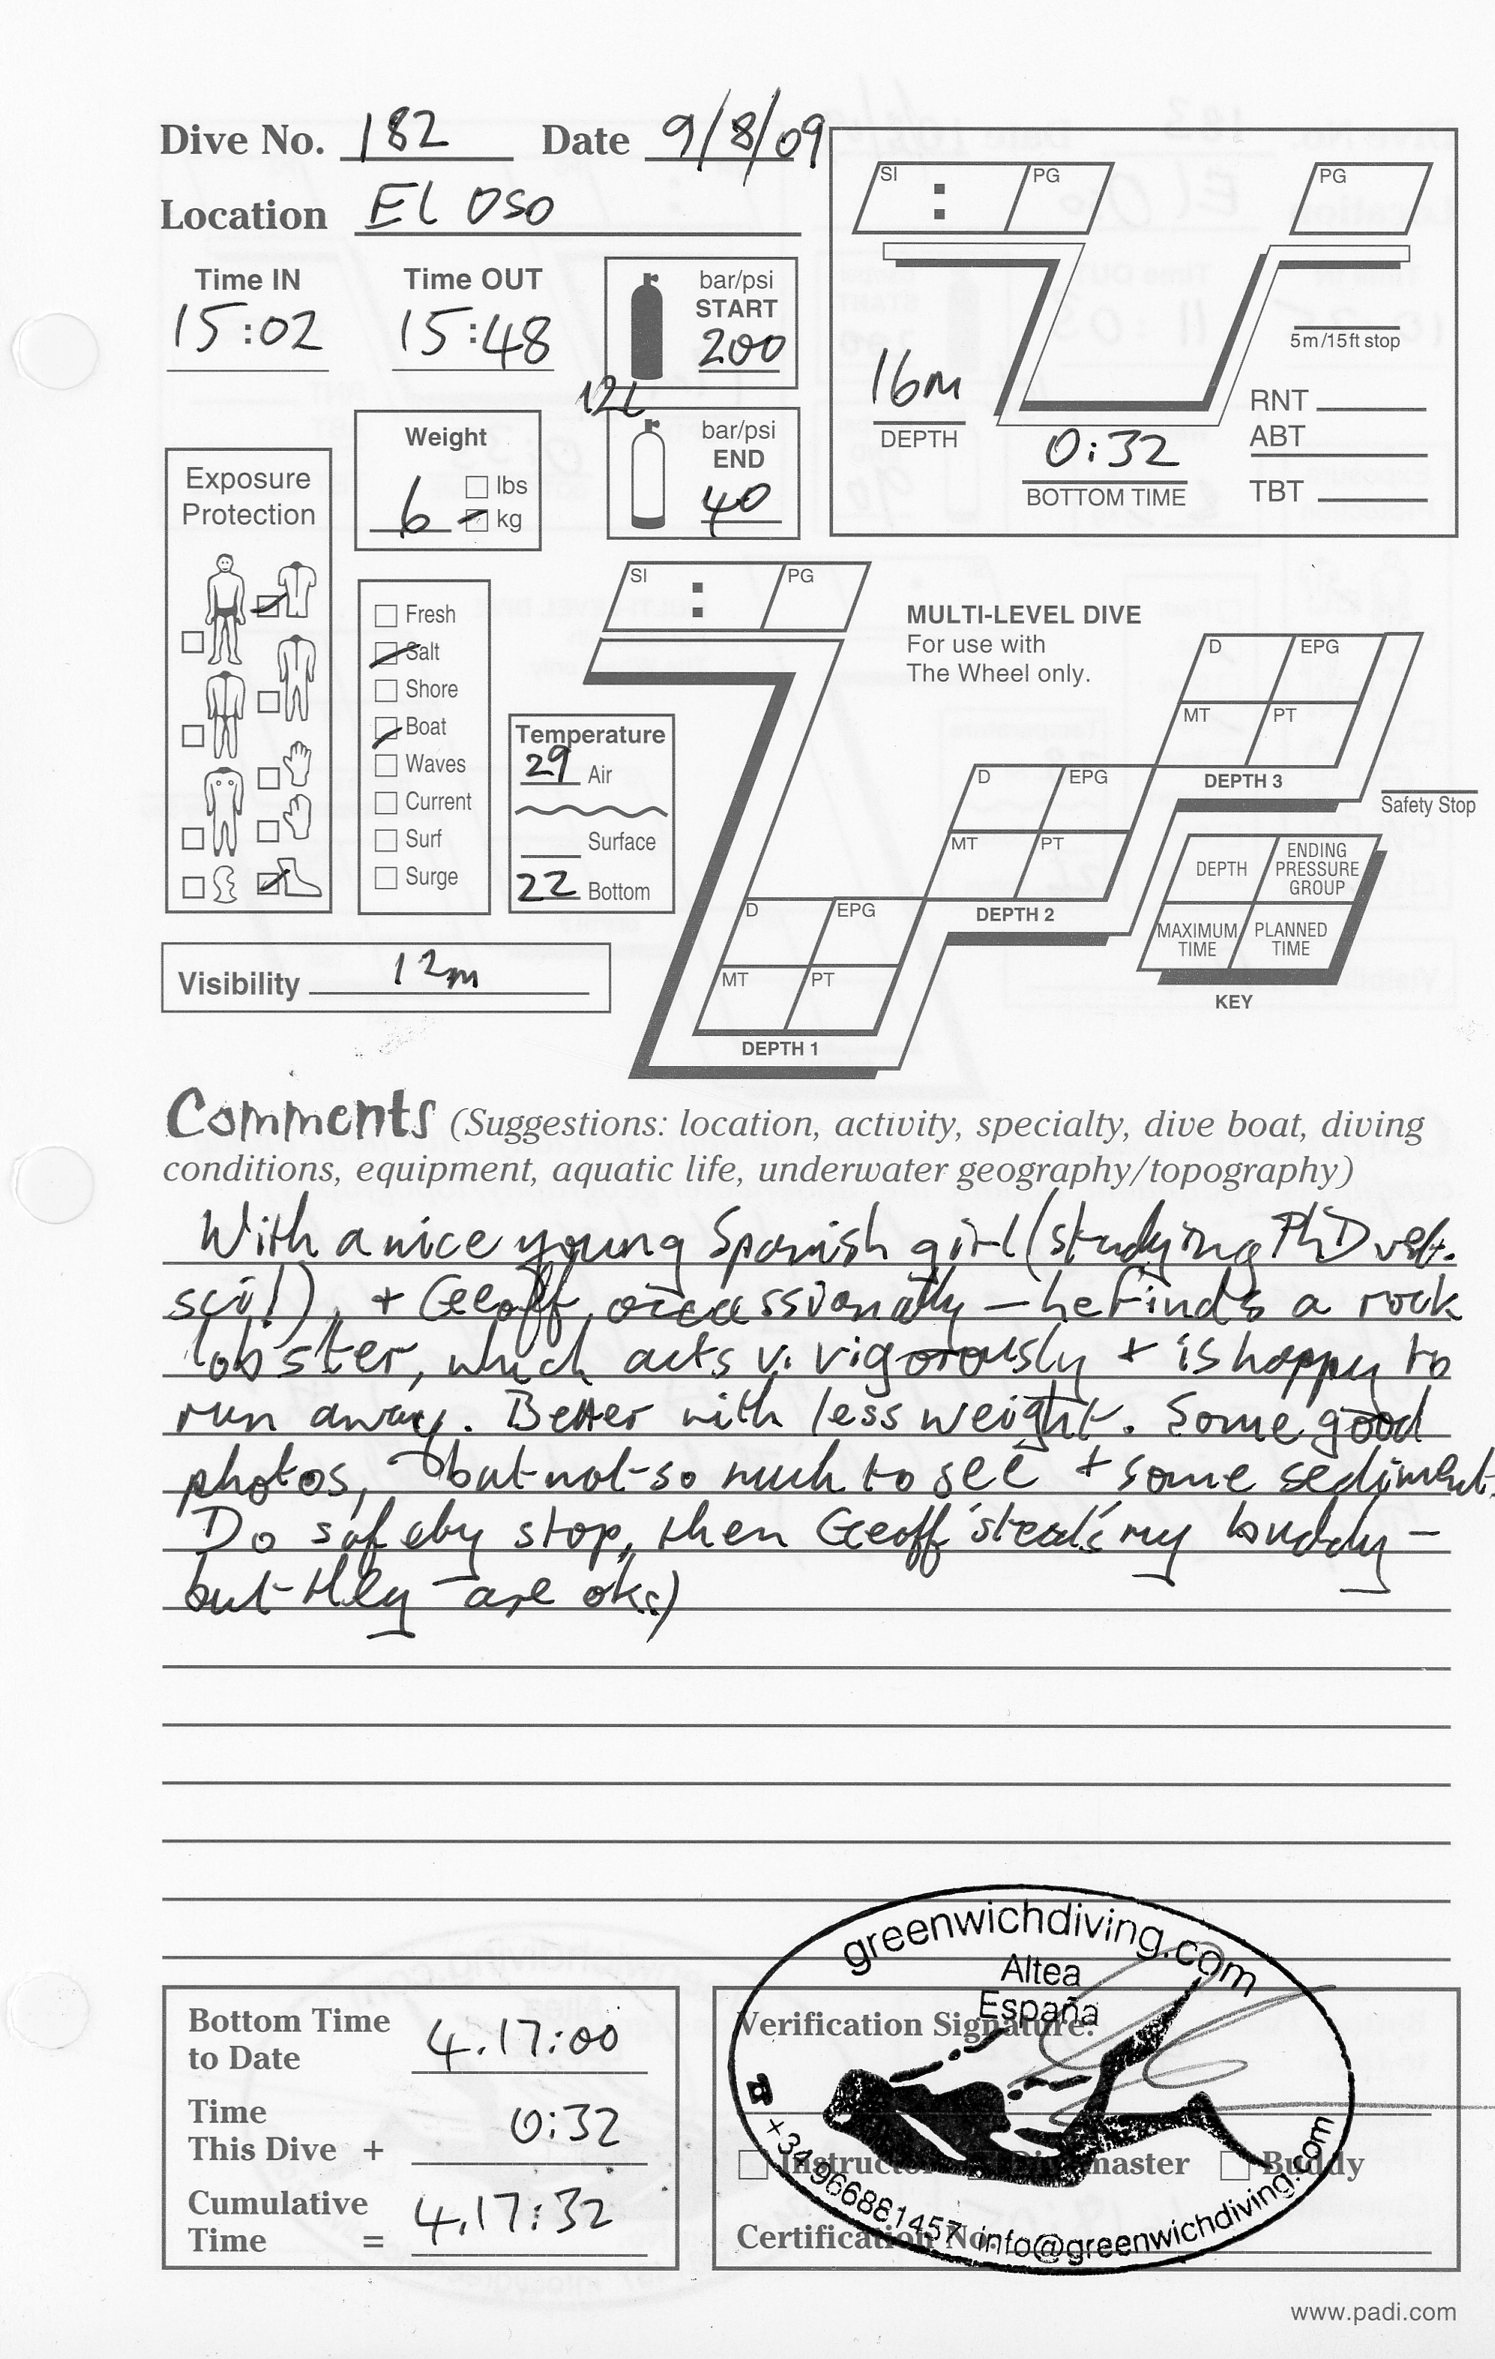 Dive No. 182 Date 9/8/09
Location El Oso
Time IN Time OUT
15:02 15:48
bar/psi
START
200
12L
bar/psi
END
40
Weight
6 lbs
kg
Exposure
Protection
Fresh
Salt
Shore
Boat
Waves
Current
Surf
Surge
Temperature
29 Air
Surface
22 Bottom
Visibility 12m
SI : PG
PG
16m
DEPTH
0:32
BOTTOM TIME
5m/15ft stop
RNT
ABT
TBT
SI : PG
MULTI-LEVEL DIVE
For use with
The Wheel only.
D EPG
MT PT
DEPTH 3
D EPG
MT PT
DEPTH 2
D EPG
MT PT
DEPTH 1
Safety Stop
DEPTH ENDING PRESSURE GROUP
MAXIMUM TIME PLANNED TIME
KEY
Comments (Suggestions: location, activity, specialty, dive boat, diving
conditions, equipment, aquatic life, underwater geography/topography)
With a nice young Spanish girl (studying PhD vet.
+ Geoff, occassionally – he finds a rock
lobster, which acts v. vigorously + is happy to
run away. Better with less weight. Some good
photos, but not so much to see + some sediment.
Do safety stop, then Geoff 'steals' my buddy –
but they are ok :)
Bottom Time
to Date 4.17:00
Time
This Dive + 0:32
Cumulative
Time = 4.17:32
Verification Signature:
Instructor Divemaster Buddy
Certification No.
greenwichdiving.com
Altea
España
☎ +34 966881457 info@greenwichdiving.com
www.padi.com